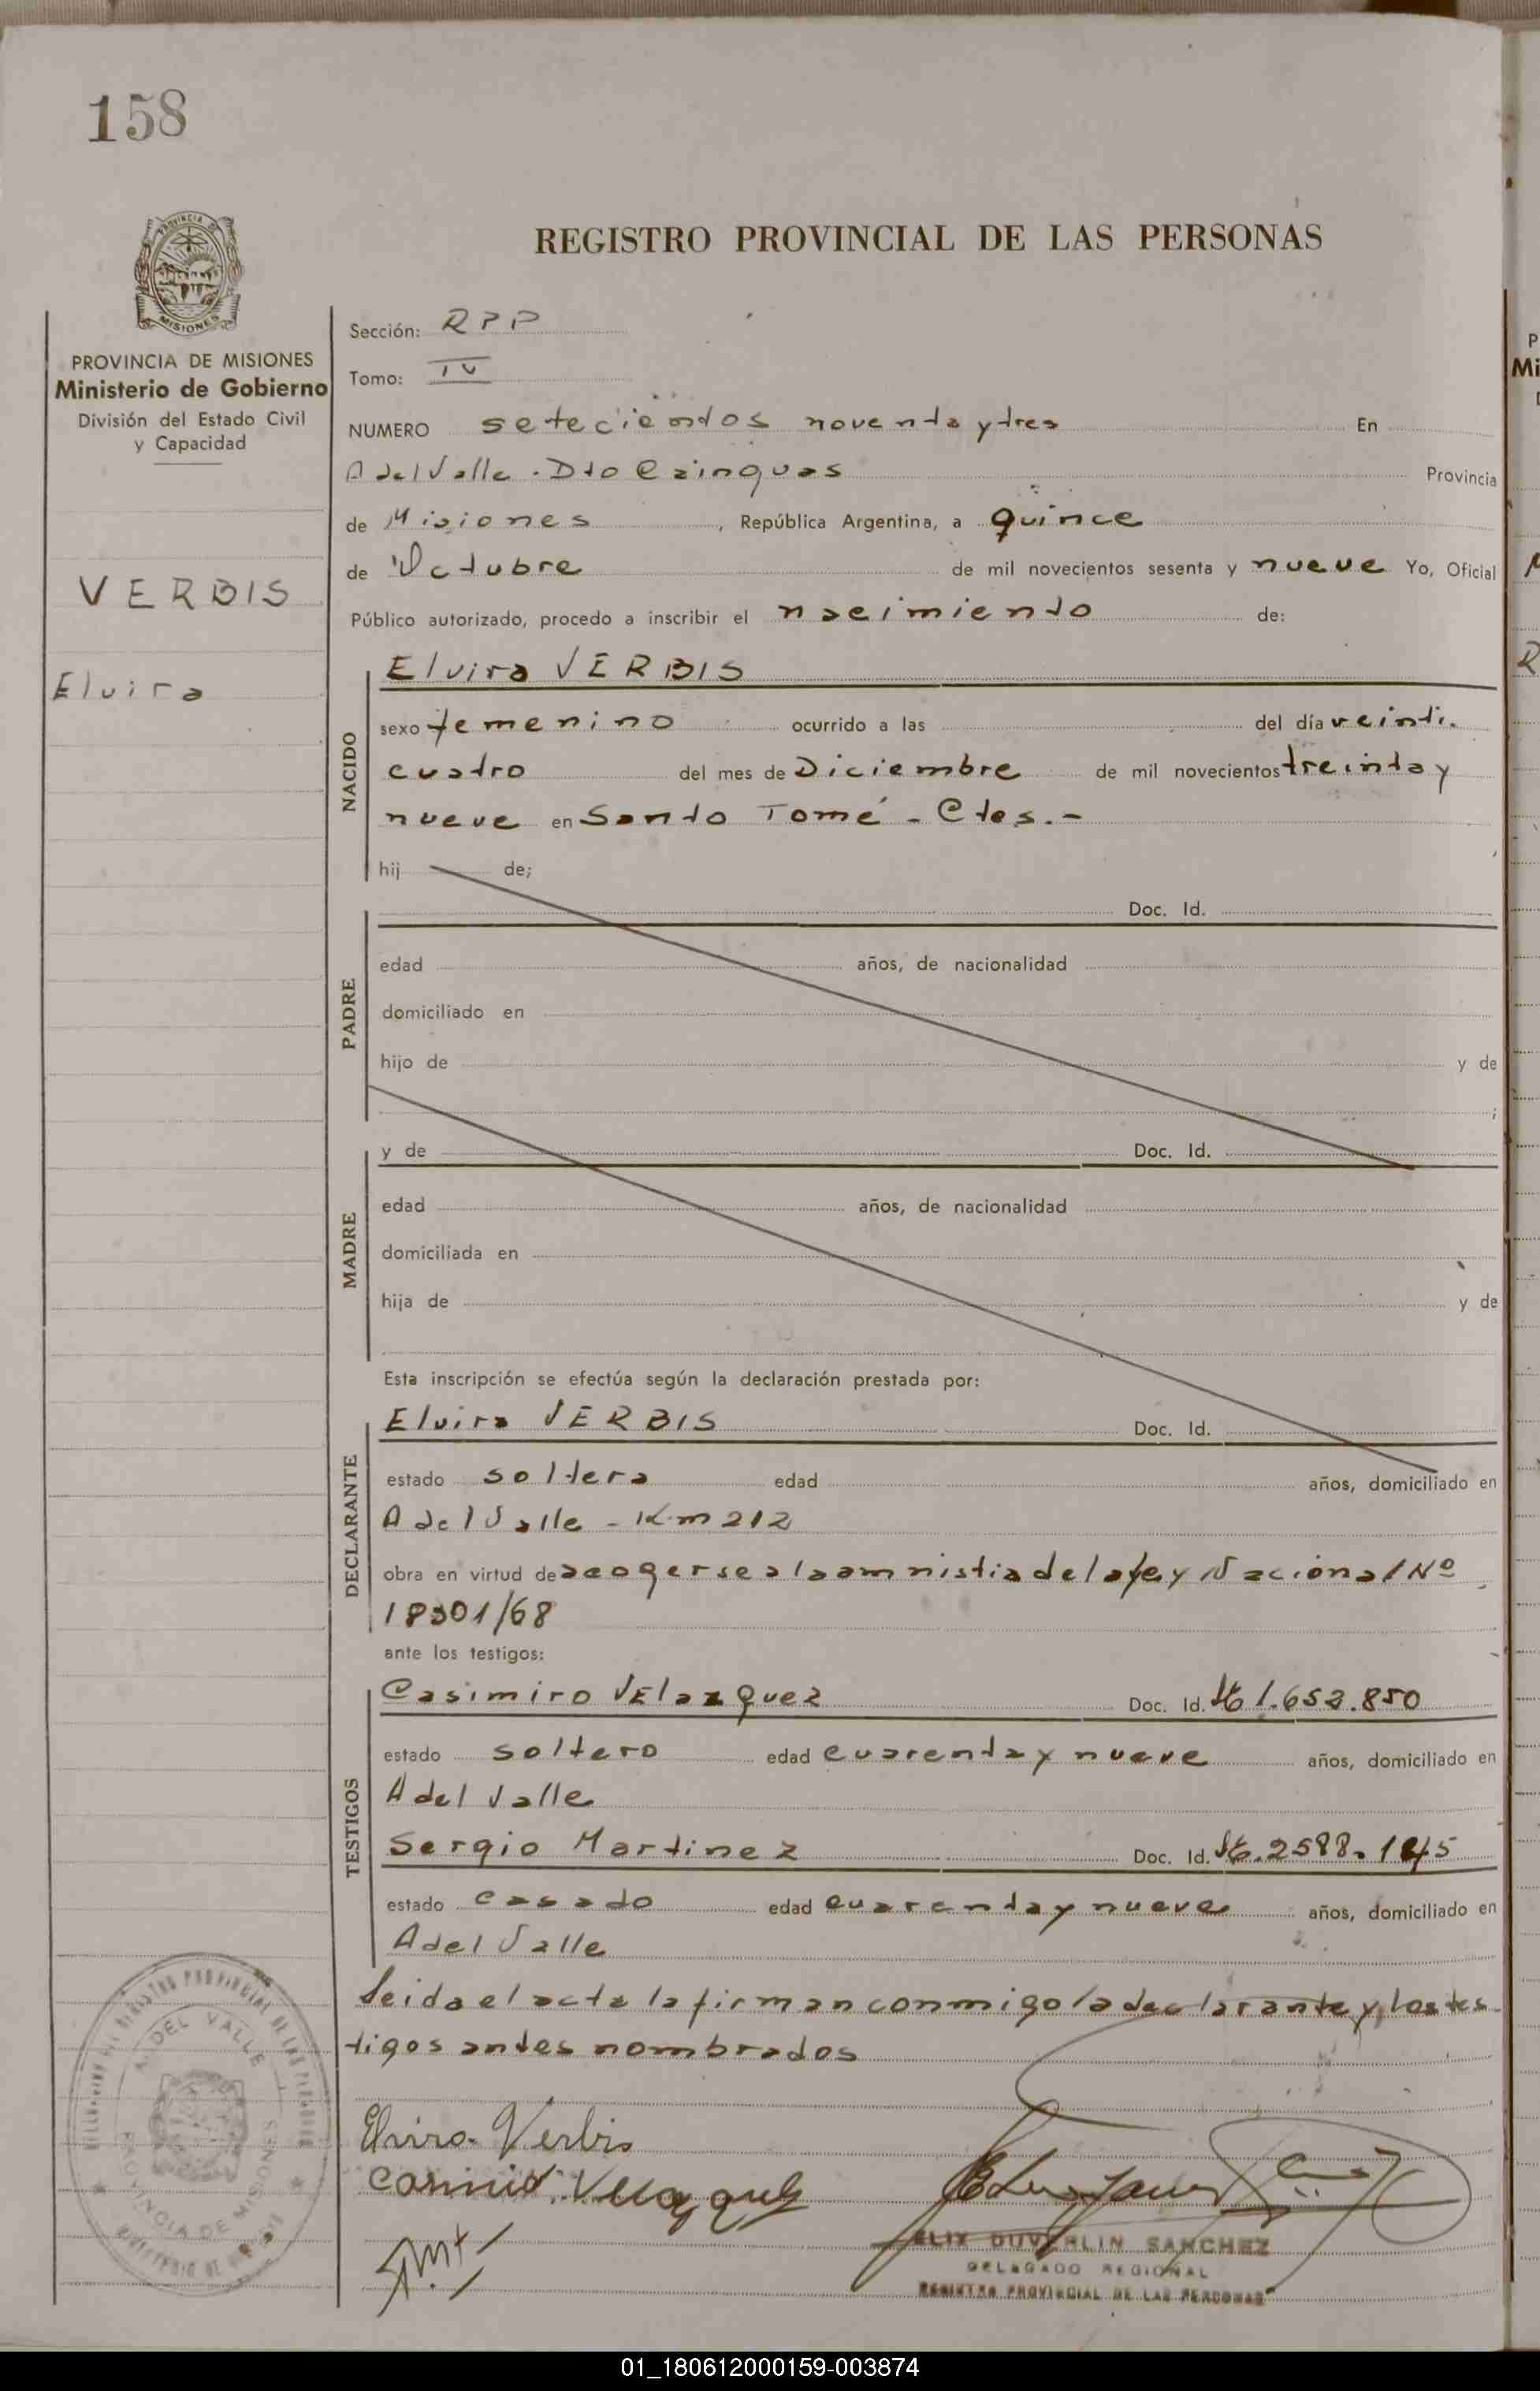 158
PROVINCIA DE
MISIONES
PROVINCIA DE MISIONES
Ministerio de Gobierno
División del Estado Civil
y Capacidad
VERBIS
Elvira
REGISTRO PROVINCIAL DE LAS PERSONAS
Sección: RPP
Tomo: IV
NUMERO setecientos noventa y tres En
A del Valle - Dto Cainguas Provincia
de Misiones , República Argentina, a quince
de Octubre de mil novecientos sesenta y nueve Yo, Oficial
Público autorizado, procedo a inscribir el nacimiento de:
NACIDO
Elvira VERBIS
sexo femenino ocurrido a las del día veinti.
cuatro del mes de Diciembre de mil novecientos treinta y
nueve en Santo Tomé - Ctes. -
hij de;
PADRE
Doc. Id.
edad años, de nacionalidad
domiciliado en
hijo de y de
;
MADRE
y de Doc. Id.
edad años, de nacionalidad
domiciliada en
hija de y de
Esta inscripción se efectúa según la declaración prestada por:
DECLARANTE
Elvira VERBIS Doc. Id.
estado soltera edad años, domiciliado en
A del Valle - Km 212
obra en virtud de acogerse a la amnistia de la ley Nacional Nº
18301/68
ante los testigos:
TESTIGOS
Casimiro VElazquez Doc. Id. 1.653.850
estado soltero edad cuarenta y nueve años, domiciliado en
A del Valle
Sergio Martinez Doc. Id. 2588.145
estado casado edad cuarenta y nueve años, domiciliado en
A del Valle
Leida el acta la firman conmigo la declarante y los tes
tigos antes nombrados
A. DEL VALLE
PROVINCIA DE MISIONES
Elvira Verbis
Casimiro Velazquez
ELIX DUVERLIN SANCHEZ
DELEGADO REGIONAL
REGISTRO PROVINCIAL DE LAS PERSONAS
01_180612000159-003874